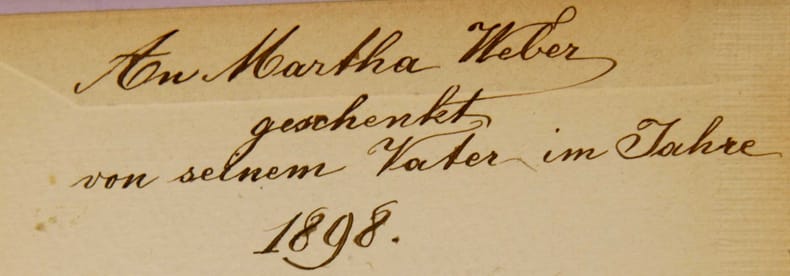 An Martha Weber
geschenkt
von seinem Vater im Jahre
1898.